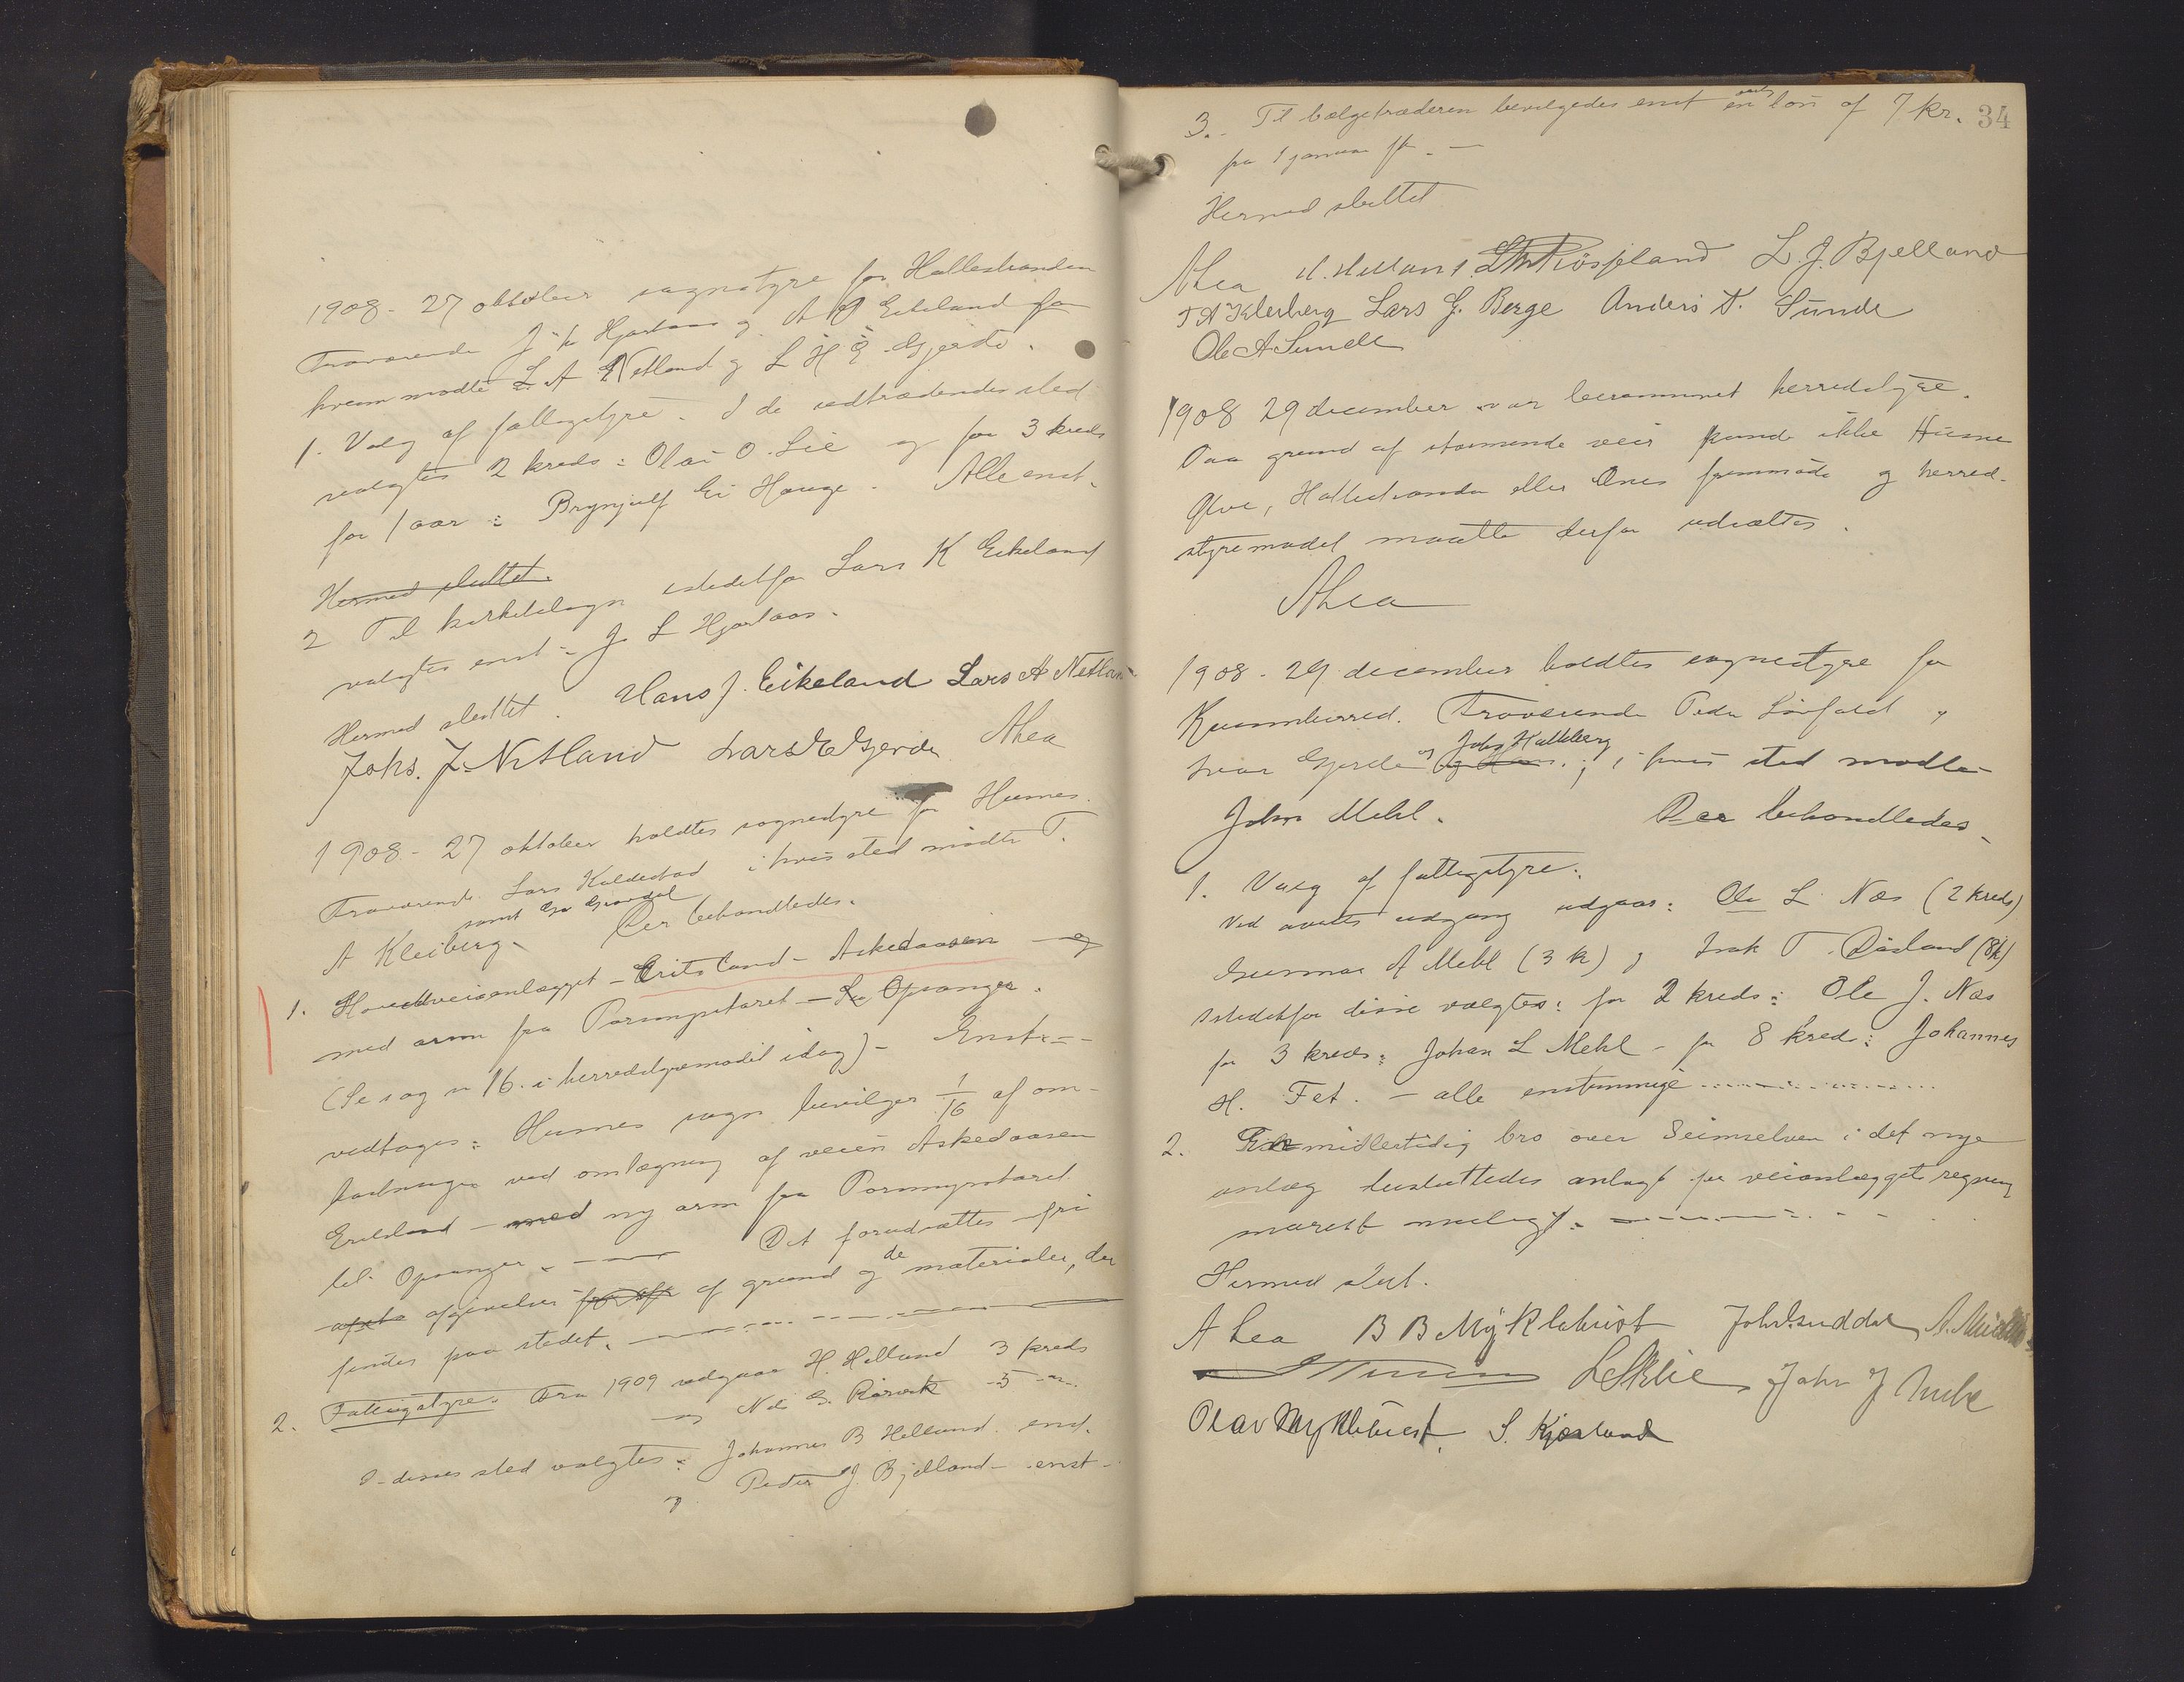 1908 - 27 oktober sognstyre for Hallestranden
Fraværende J K Hjortaas og A O Eikeland for
hvem mødte L. A Netland og L H E Gjerde.
1. Valg af fattigstyre. I de udtrædendes sted
valgtes 2 kreds: Olai O. Lie og for 3 kreds
for 1 aar: Brynjulf Ei Hauge. Alle enst.
Hermed sluttet.
2 Til kirketilsyn istedetfor Lars K Eikeland
valgtes enst - J L Hjortaas.
Hermed sluttet. Hans J. Eikeland Lars A Netland
Johs. J. Netland Lars E Gjerde ALea
1908 - 27 oktober holdtes sognestyre for Husnes.
Fraværende Lars Kaldestad i hvis sted mødte T.
A Kleiberg. Der behandledes.
1. Hovedveianlægget - Eritsland - Askedaasen og
med arm fra Porsmyrskaret - Opsanger.
(Se sag n 16. i herredstyremødet idag) - Enst.
vedtoges: Husnes sogn bevilger 1/16 af om-
kostninger ved omlægning af veien Askedaasen
Eritsland - med ny arm fra Porsmyrskaret
til Opsanger. - Det forudsættes fri
afgivelse af grund og de materialer, der
findes paa stedet.
2. Fattigstyre. Fra 1909 udgaar H. Helland 3 kreds
og Nils G. Rørvik 5 -
I disses sted valgtes: Johannes B Helland. enst.
og Peder J. Bjelland - enst -
34
3. Til bælgetræderen bevilgedes enst en løn af 7 kr.
fra 1 januar
Hermed sluttet
ALea H. Helland. Røssland L. J. Bjelland
T A Kleiberg Lars G. Berge Anders T. Sunde
Ole A Sunde
1908 29 december var berammet herredstyre.
Paa grund af stormende veir kunde ikke Husnes
Ølve, Hallestranden eller Ænes fremmøde og herred-
styremødet maatte derfor udsættes.
ALea
1908 - 29 december holdtes sognestyre for
Kvamherred. Fraværende Peder Løvfald og
Ivar Gjerde og Johs Hatteberg; i hvis sted mødte
John Mehl. Der behandledes
1. Valg af fattigstyre.
Ved aarets udgang udgaar: Ole L Næs (2 kreds)
Gunnar A Mehl (3 k) og Isak T. Døsland (8k)
Istedetfor disse valgtes: for 2 kreds: Ole J. Næs
for 3 kreds: Johan L Mehl - for 8 kreds: Johannes
H. Fet. - alle enstemmige
2. En midlertidig bro over Seimselven i det nye
anlæg besluttedes anlagt for veianlæggets regning
snarest muligt.
Hermed slut.
A Lea B B Myklebust
L Sklie John J Mehl
Olav Myklebust, S. Kjærland